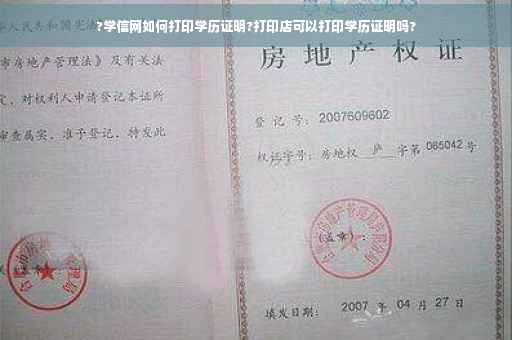 ?学信网如何打印学历证明?打印店可以打印学历证明吗?
人民共和国宪法
市房地产管理法》及有关法
定，对权利人申请登记本证所
审查属实，准予登记，特发此
房地产权证
登记号：2007609602
权证字号：房地权 庐 字第 065042 号
(盖章)：
填发日期： 2007 年 04 月 27 日